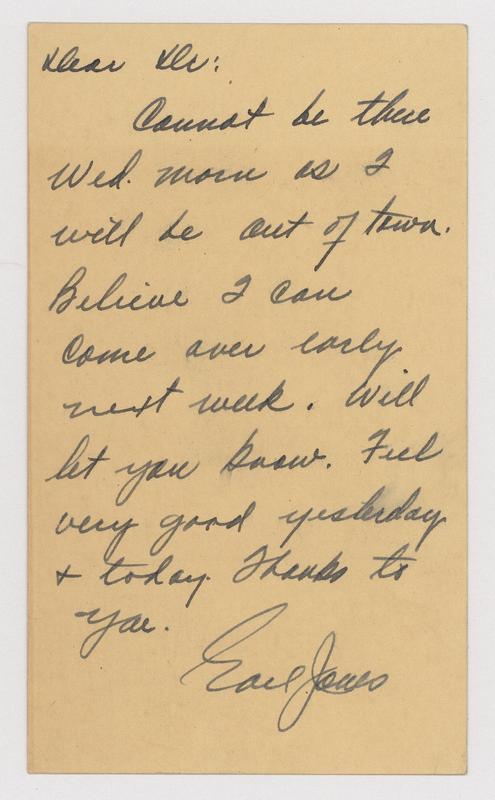 Dear Dr:
Cannot be there
Wed. morn as I
will be out of town.
Believe I can
come over early
next week. Will
let you know. Feel
very good yesterday
& today. Thanks to
you.
Earl Jones